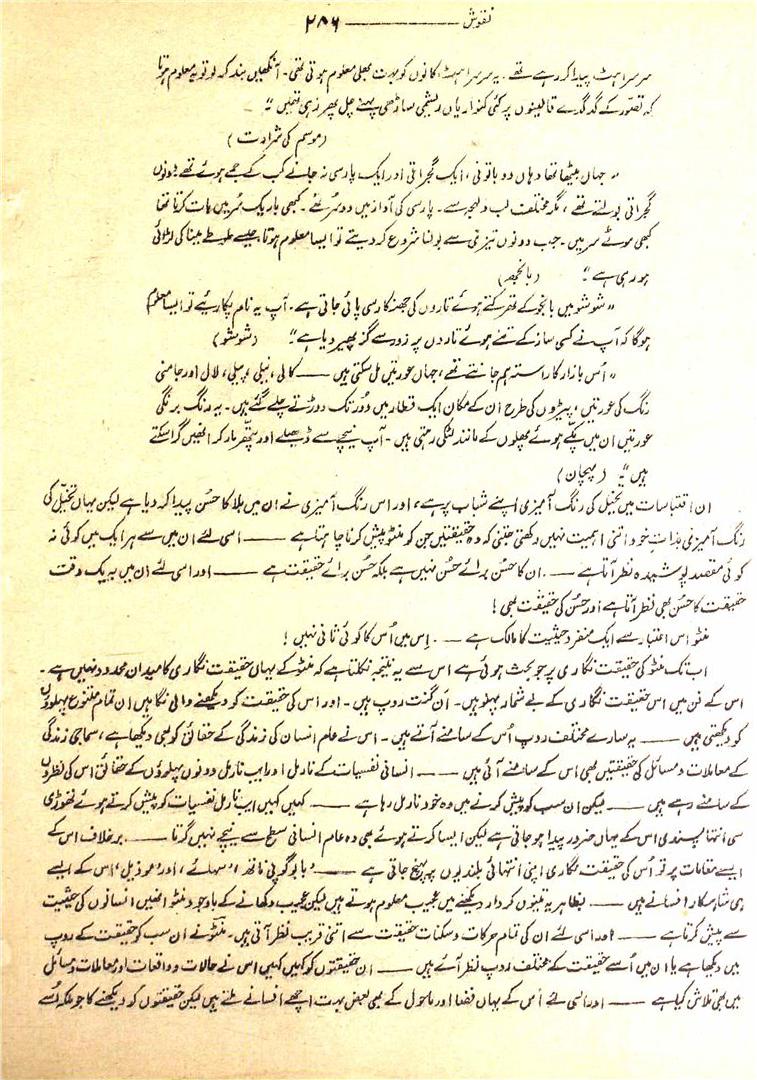 نقوش ———— ۲۸۶
سرسراہٹ پیدا کر رہے تھے۔ یہ سرسراہٹ کانوں کو بہت بھلی معلوم ہوتی تھی۔ آنکھیں بند کر لو تو یہ معلوم ہوتا
کہ تصوّر کے گدگدے قالینوں پر کئی کنواریاں ریشمی ساڑھی پہنے چل پھر رہی تھیں "
(موسم کی شرارت)
" جہاں بیٹھا تھا وہاں دو باتونی، ایک گجراتی اور ایک پارسی نہ جانے کب کے جمے ہوئے تھے دونوں
گجراتی بولتے تھے، مگر مختلف لب و لہجہ سے۔ پارسی کی آواز میں دو سُر تھے۔ کبھی باریک سُر میں بات کرتا تھا
کبھی موٹے سر میں۔ جب دونوں تیزی سے بولنا شروع کر دیتے تو ایسا معلوم ہوتا جیسے طوطے مینا کی لڑائی
ہو رہی ہے " (بانجھ)
" شوشو میں بانجو کے تھرکتے ہوئے تاروں کی جھنکار سی پائی جاتی ہے۔ آپ یہ نام پکاریئے تو ایسا معلوم
ہوگا کہ آپ نے کسی ساز کے تنے ہوئے تاروں پر زور سے گز پھیر دیا ہے " (شوشو)
" اُس بازار کا راستہ ہم جانتے تھے، جہاں عورتیں مل سکتی ہیں —— کالی، نیلی، پیلی، لال اور جامنی
رنگ کی عورتیں، پیڑوں کی طرح ان کے مکان ایک قطار میں دُور تک دوڑتے چلے گئے ہیں۔ یہ رنگ برنگی
عورتیں ان میں پکے ہوئے پھلوں کے مانند لٹکی رہتی ہیں۔ آپ نیچے سے ڈھیلے اور پتھر مار کر انھیں گرا سکتے
ہیں " (پہچان)
ان اقتباسات میں تخیل کی رنگ آمیزی اپنے شباب پر ہے، اور اس رنگ آمیزی نے ان میں بلا کا حسُن پیدا کر دیا ہے لیکن یہاں تخیّل کی
رنگ آمیزی بذاتِ خود اتنی اہمیت نہیں رکھتی جتنی کہ وہ حقیقتیں جن کو منٹو پیش کرنا چاہتا ہے —— اسی لئے ان میں سے ہر ایک میں کوئی نہ
کوئی مقصد پوشیدہ نظر آتا ہے ——. ان کا حسُن برائے حسُن نہیں ہے بلکہ حسُن برائے حقیقت ہے —— اور اسی لئے ان میں بہ یک وقت
حقیقت کا حسُن بھی نظر آتا ہے اور حسُن کی حقیقت بھی!
منٹو اس اعتبار سے ایک منفرد حیثیت کا مالک ہے ——. اِس میں اُس کا کوئی ثانی نہیں!
اب تک منٹو کی حقیقت نگاری پر جو بحث ہوئی ہے اس سے یہ نتیجہ نکلتا ہے کہ منٹو کے یہاں حقیقت نگاری کا میدان محدود نہیں ہے۔
اس کے فن میں اس حقیقت نگاری کے بے شمار پہلو ہیں۔ اَن گنت روپ ہیں۔ اور اس کی حقیقت کو دیکھنے والی نگاہیں ان تمام متنوع پہلوؤں
کو دیکھتی ہیں —— یہ سارے مختلف روپ اُس کے سامنے آتے ہیں۔ اس نے عام انسان کی زندگی کے حقائق کو بھی دیکھا ہے، سماجی زندگی
کے معاملات و مسائل کی حقیقتیں بھی اس کے سامنے آئی ہیں —— انسانی نفسیات کے نارمل اور ایب نارمل دونوں پہلوؤں کے حقائق اس کی نظروں
کے سامنے رہے ہیں —— لیکن ان سب کو پیش کرنے میں وہ خود نارمل رہا ہے —— کہیں کہیں ایب نارمل نفسیات کو پیش کرتے ہوئے تھوڑی
سی انتہا پسندی اس کے یہاں ضرور پیدا ہو جاتی ہے لیکن ایسا کرتے ہوئے بھی وہ عام انسانی سطح سے نیچے نہیں گرتا ——. برخلاف اس کے
ایسے مقامات پر تو اُس کی حقیقت نگاری اپنی انتہائی بلندیوں پر پہنچ جاتی ہے —— 'بابو گوپی ناتھ'، 'سہائے'، اور 'موذیل' اس کے ایسے
ہی شاہکار افسانے ہیں —— بظاہر یہ تینوں کردار دیکھنے میں عجیب معلوم ہوتے ہیں لیکن عجیب دکھانے کے باوجود منٹو انھیں انسانوں کی حیثیت
سے پیش کرتا ہے —— اور اسی لئے ان کی تمام حرکات و سکنات حقیقت سے اتنی قریب نظر آتی ہیں۔ منٹو نے ان سب کو حقیقت کے روپ
میں دیکھا ہے یا ان میں اُسے حقیقت کے مختلف روپ نظر آئے ہیں —— ان حقیقتوں کو کہیں کہیں اس نے حالات و واقعات اور معاملات و مسائل
میں بھی تلاش کیا ہے —— اور اسی لئے اُس کے یہاں فضا اور ماحول کے بھی بعض بہت اچھے افسانے ملتے ہیں لیکن حقیقتوں کو دیکھنے کا جو ملکہ اُسے